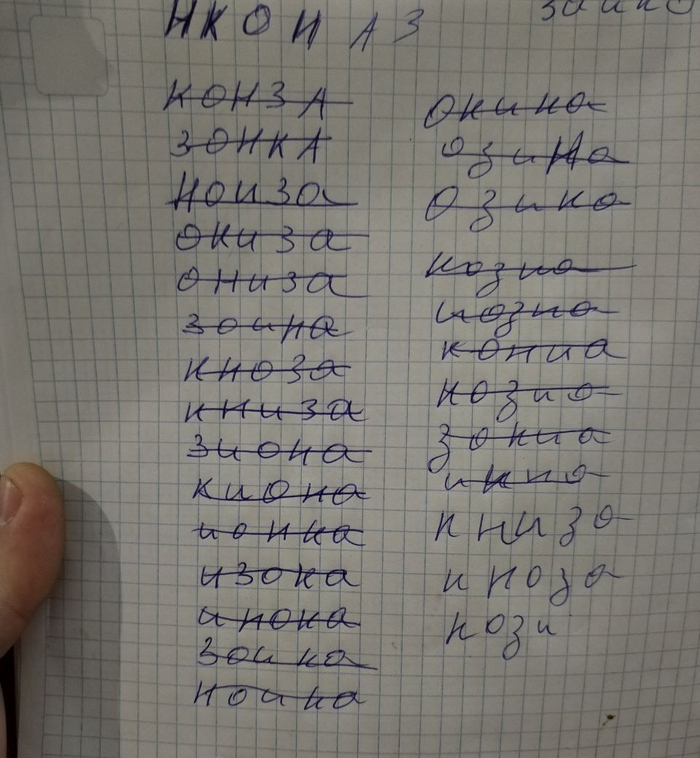 НКОИАЗ
КОНЗА
ЗОНКА
НОИЗА
ОКИЗА
ОНИЗА
зоина
кноза
книза
зиона
киона
ионка
изока
инока
Зоика
ноика
окина
озиНа
озика
козна
иозна
кониа
нозиа
зокиа
книза
иноза
кози